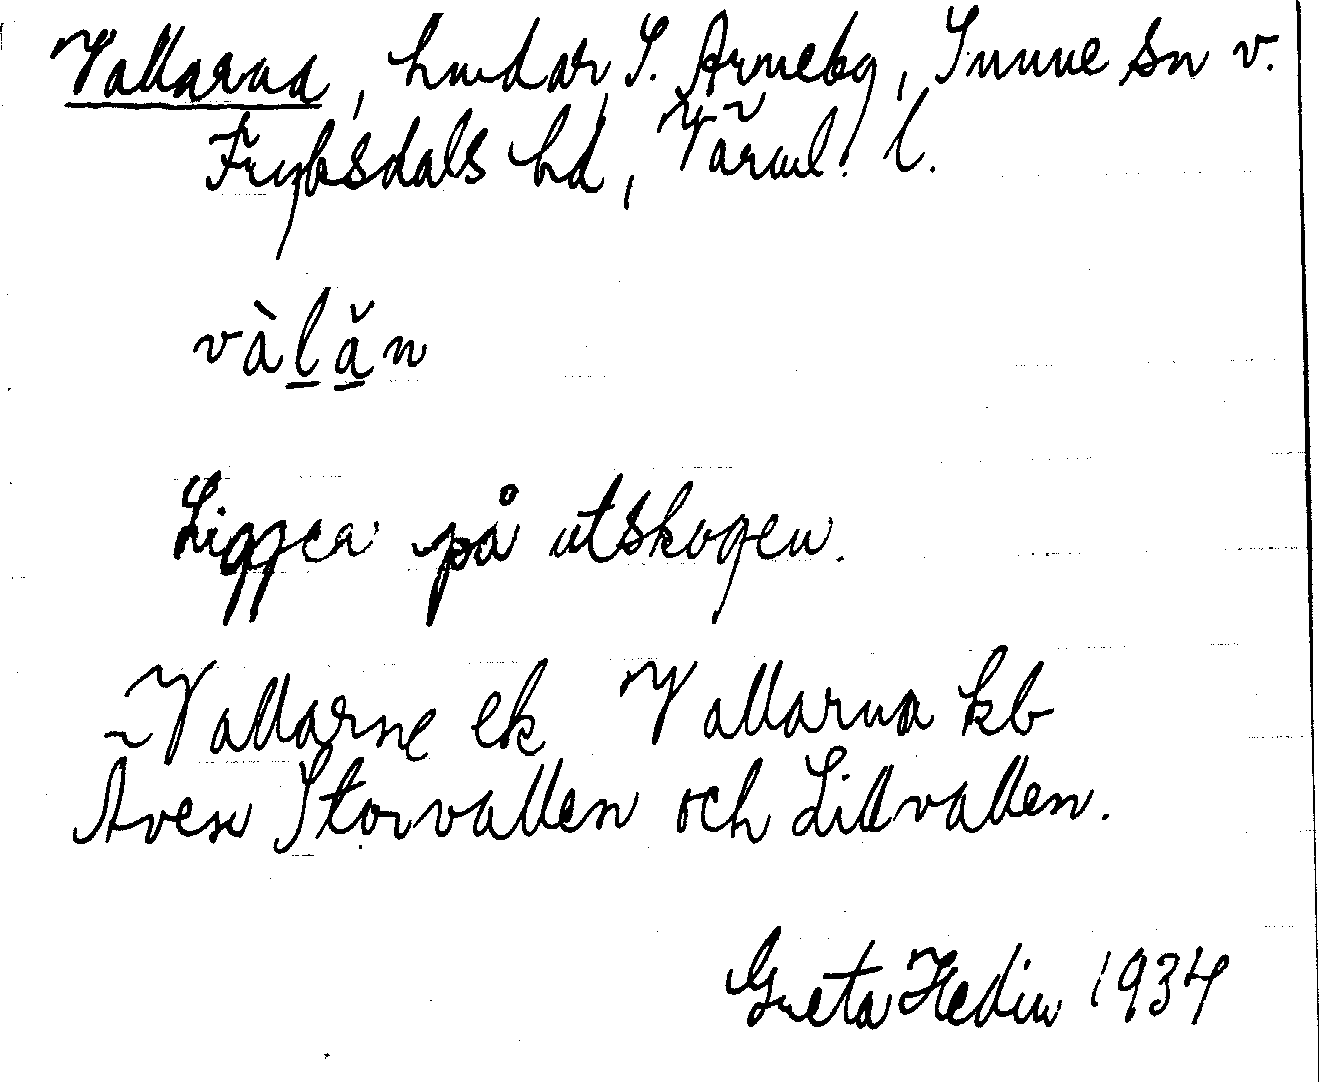 Vallarna, hmdar, S. Arneby, Sunne sn v.
Fryksdals hd, Värml. l.
vàlăn
Ligger på utskogen.
~Vallarne ek Vallarna kb
Även Storvallen och Lillvallen.
Greta Hedin 1934